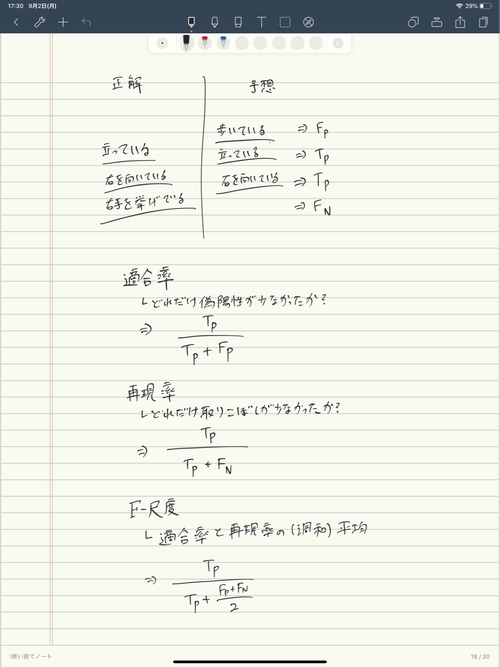 17:30 9月2日(月)
29%
正解 予想
歩いている ⇒ FP
立っている 立っている ⇒ TP
右を向いている 右を向いている ⇒ TP
右手を挙げている ⇒ FN
適合率
└どれだけ偽陽性が少なかったか?
⇒ TP / (TP + FP)
再現率
└どれだけ取りこぼしが少なかったか?
⇒ TP / (TP + FN)
F-尺度
└ 適合率と再現率の(調和)平均
⇒ TP / (TP + (FP+FN)/2)
!使い捨てノート
18 / 20